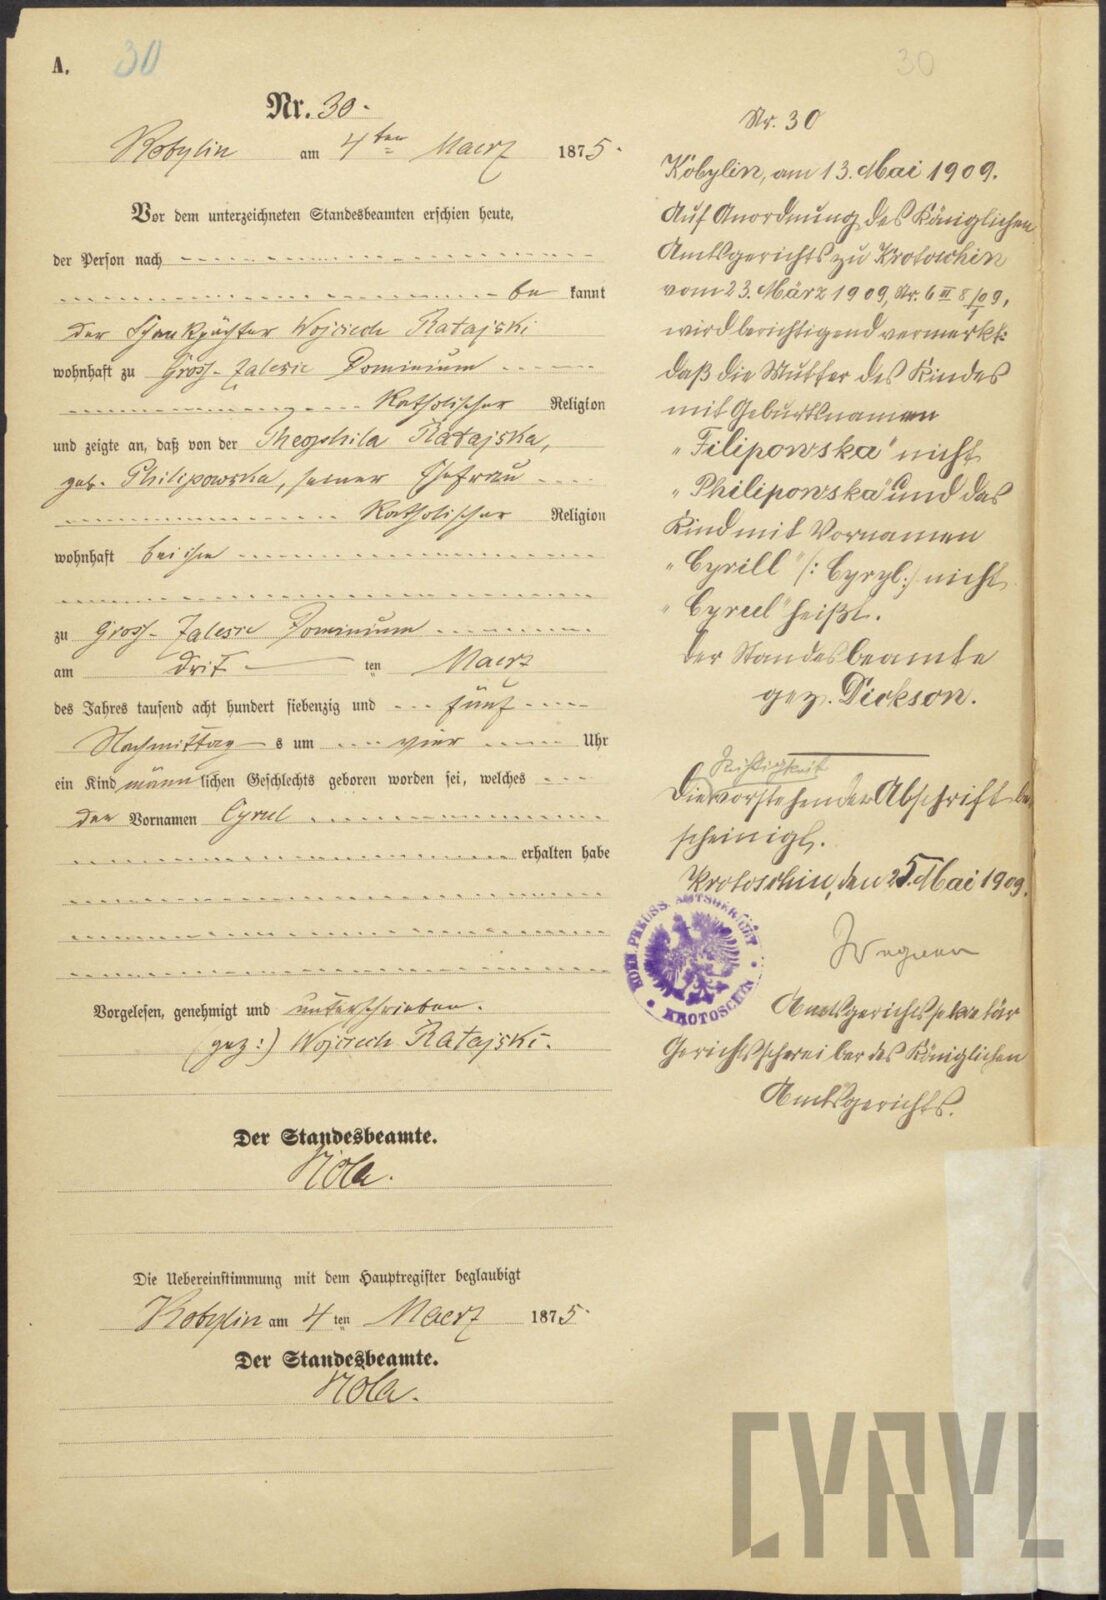 A.
30
30
Nr. 30.
Kobylin am 4ten Maerz 1875.
Vor dem unterzeichneten Standesbeamten erschien heute,
der Person nach
be kannt
der Schankpächter Wojciech Ratajski
wohnhaft zu Gross-Zalesie Dominium
Katholischer Religion
und zeigte an, daß von der Theophila Ratajska,
geb. Philipowska, seiner Ehefrau
Katholischer Religion
wohnhaft bei ihm
zu Gross-Zalesie Dominium
am dritten Maerz
des Jahres tausend acht hundert siebenzig und fünf
Nachmittags um vier Uhr
ein Kind männlichen Geschlechts geboren worden sei, welches
den Vornamen Cyrul
erhalten habe
Vorgelesen, genehmigt und unterschrieben.
(gez:) Wojciech Ratajski.
Der Standesbeamte.
Nola.
Die Uebereinstimmung mit dem Hauptregister beglaubigt
Kobylin am 4ten Maerz 1875.
Der Standesbeamte.
Nola.
Nr. 30
Kobylin, am 13. Mai 1909.
Auf Anordnung des Königlichen
Amtsgerichts zu Krotoschin
vom 23. März 1909, Nr. 6 III 8/09,
wird berichtigend vermerkt:
daß die Mutter des Kindes
mit Geburtsnamen
"Filipowska" nicht
"Philipowska" und das
Kind mit Vornamen
"Cyrill" /: Cyryl :/ nicht
"Cyrul" heißt.
Der Standesbeamte
gez. Dickson.
Richtigkeit
Die vorstehender Abschrift be
scheinigt.
Krotoschin, den 25. Mai 1909.
Wegner
Amtsgerichtssekretär
Gerichtsschreiber des Königlichen
Amtsgerichts.
KOEN. PREUSS. AMTSGERICHT
KROTOSCHIN
CYRYL